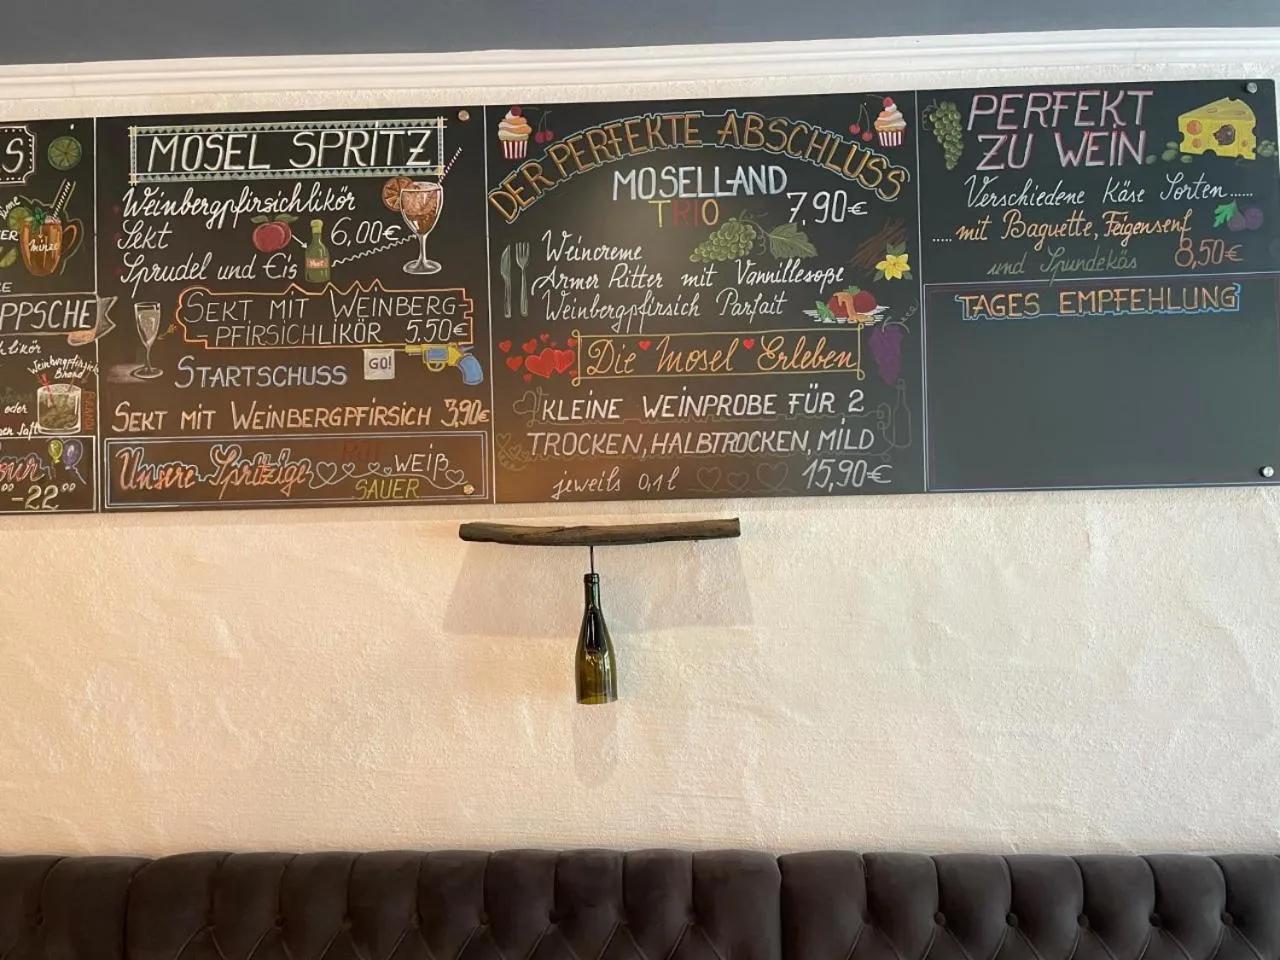 S
minze
PPSCHE
hlikör
Weinbergpfirsich
Brand
oder
en Saft
-22°°
MOSEL SPRITZ
Weinbergpfirsichlikör
Sekt 6,00€
Sprudel und Eis
SEKT MIT WEINBERG-
-PFIRSICHLIKÖR 5.50€
STARTSCHUSS GO!
SEKT MIT WEINBERGPFIRSICH 3,90€
Unsere Spritzige WEIß
SAUER
DER PERFEKTE ABSCHLUSS
MOSELLAND
TRIO 7,90€
Weincreme
Armer Ritter mit Vannillesoße
Weinbergpfirsich Parfait
Die Mosel Erleben
KLEINE WEINPROBE FÜR 2
TROCKEN, HALBTROCKEN, MILD
jeweils 0,1 l 15,90€
PERFEKT
ZU WEIN
Verschiedene Käse Sorten......
..... mit Baguette, Feigensenf
und Spundekäs 8,50€
TAGES EMPFEHLUNG